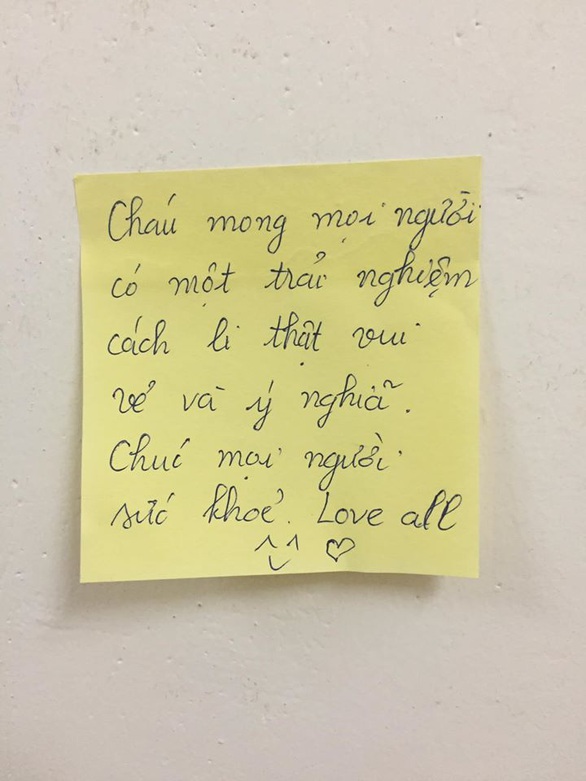 Cháu mong mọi người
có một trải nghiệm
cách li thật vui
vẻ và ý nghĩa.
Chúc mọi người
sức khoẻ. Love all
^‿^ ♡